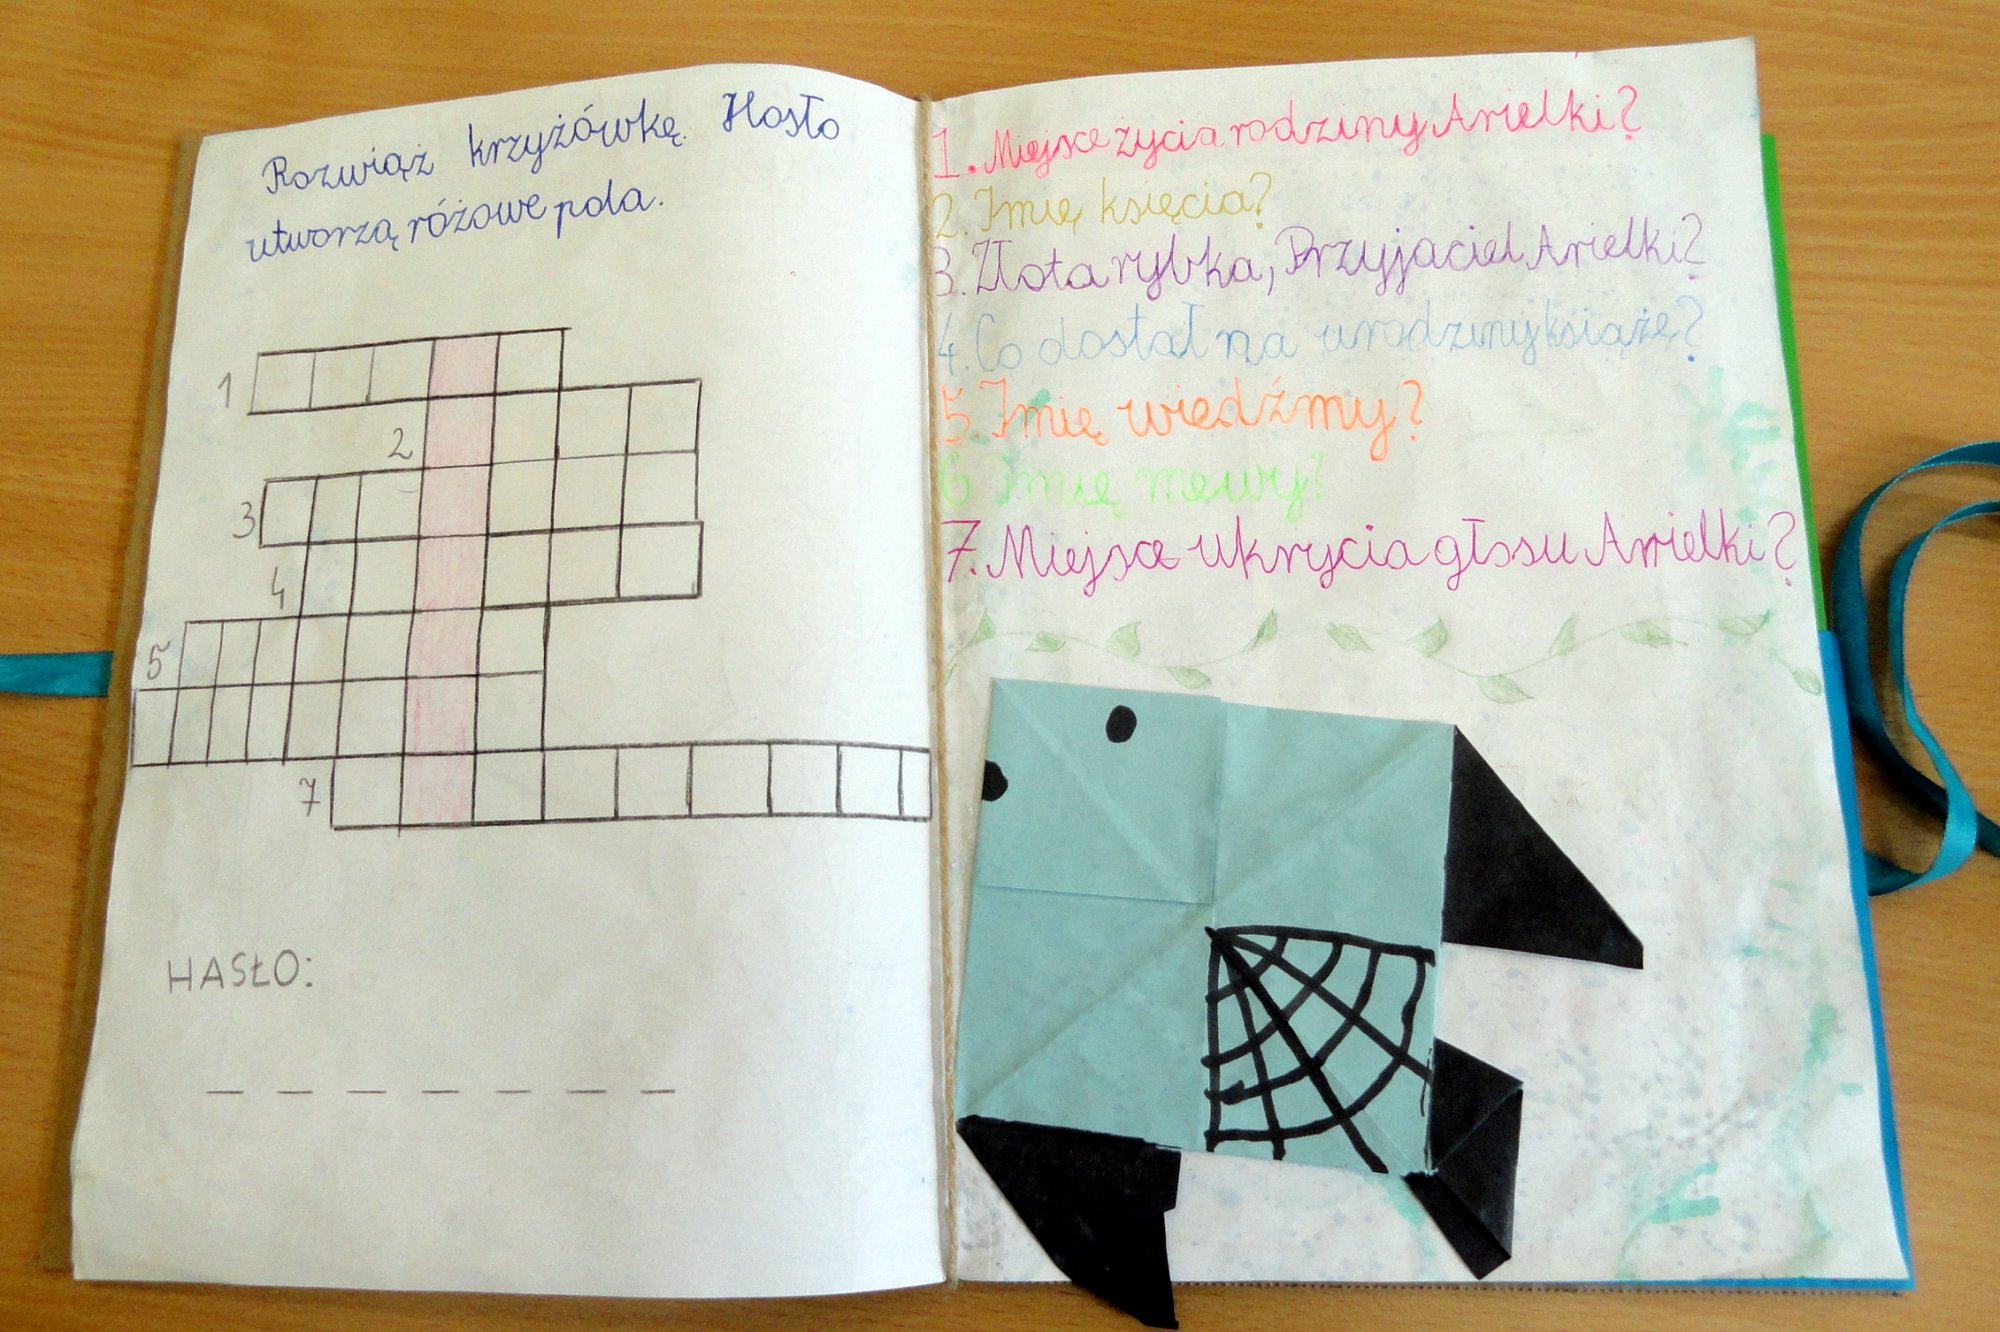 Rozwiąż krzyżówkę. Hasło
utworzą różowe pola.
1
2
3
4
5
7
HASŁO:
_ _ _ _ _ _ _
1. Miejsce życia rodziny Arielki?
2. Imię księcia?
3. Złota rybka, Przyjaciel Arielki?
4. Co dostał na urodziny książę?
5. Imię wiedźmy?
6 Imię mewy?
7. Miejsce ukrycia głosu Arielki?